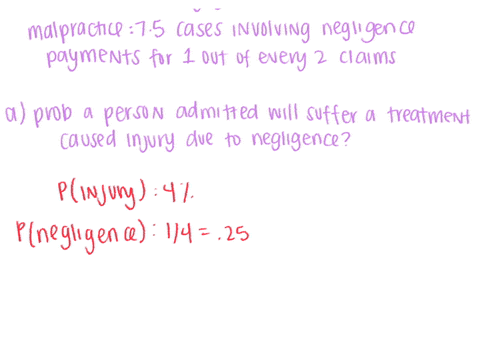 malpractice: 7.5 cases involving negligence
payments for 1 out of every 2 claims
a) prob a person admitted will suffer a treatment
caused injury due to negligence?
P(injury): 4%
P(negligence): 1/4 = .25